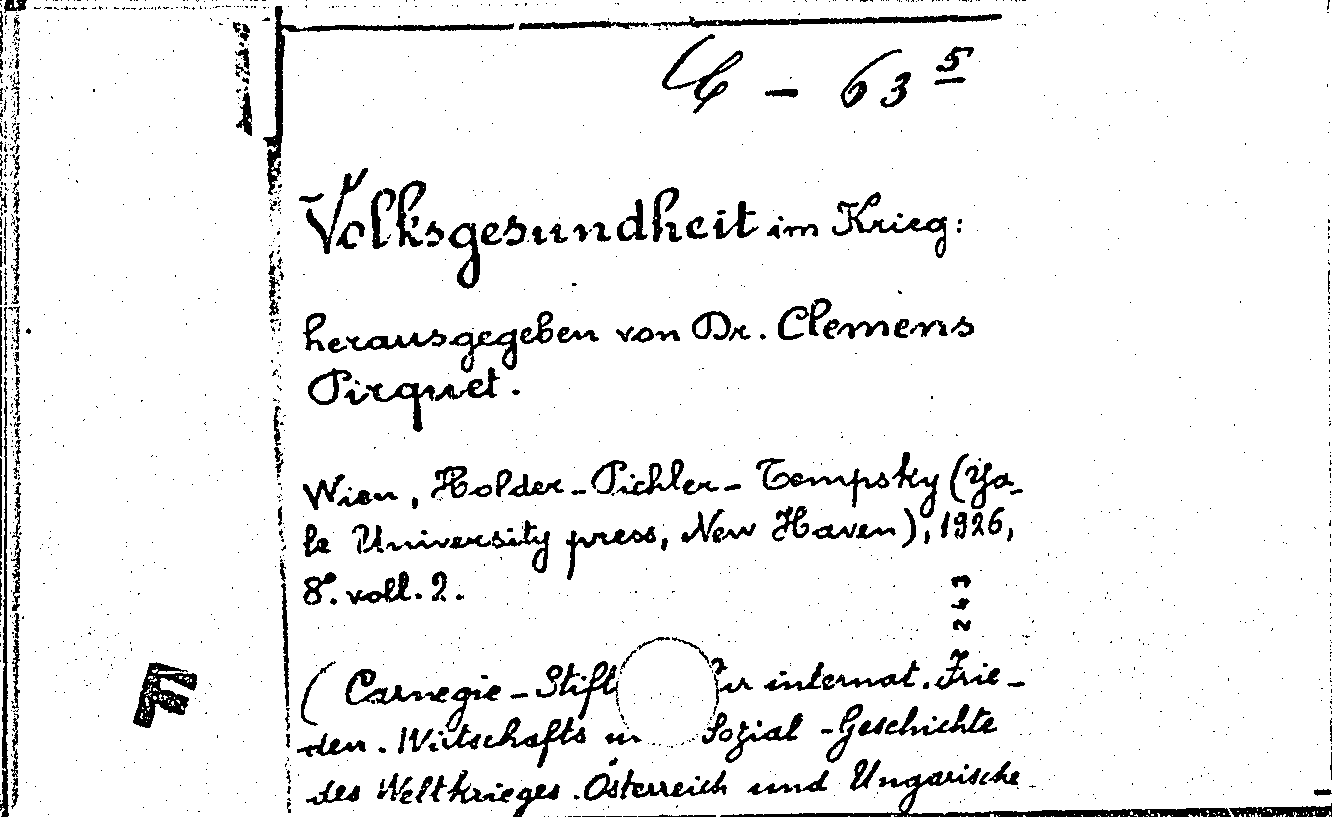 C - 63 5
Volksgesundheit im Krieg:
herausgegeben von Dr. Clemens
Pirquet.
Wien, Holder-Pichler-Tempsky (Ya-
le University press, New Haven), 1926,
8°. voll. 2.
243
(Carnegie-Stift ür internat. Frie-
den. Wirtschafts un Sozial-Geschichte
des Weltkrieges. Österreich und Ungarische
F